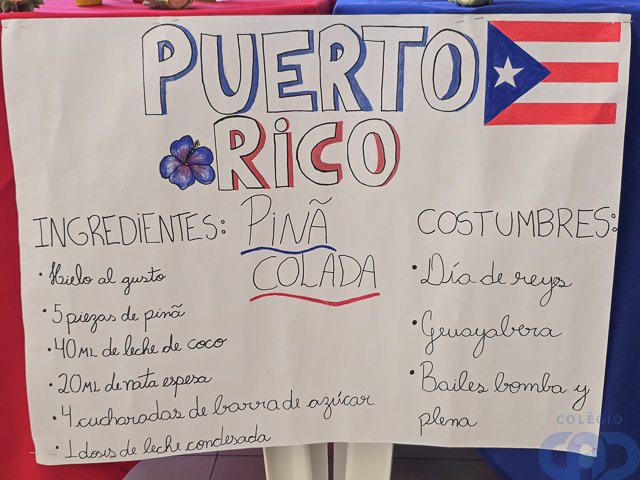 PUERTO
RICO
INGREDIENTES:
PINÃ
COLADA
• Hielo al gusto
• 5 piezas de pinã
• 40ML de leche de coco
• 20ML de nata espesa
• 4 cucharadas de barra de azúcar
• 1 dosis de leche condesada
COSTUMBRES:
• Día de reys
• Guayabera
• Bailes bomba y
plena
COLÉGIO